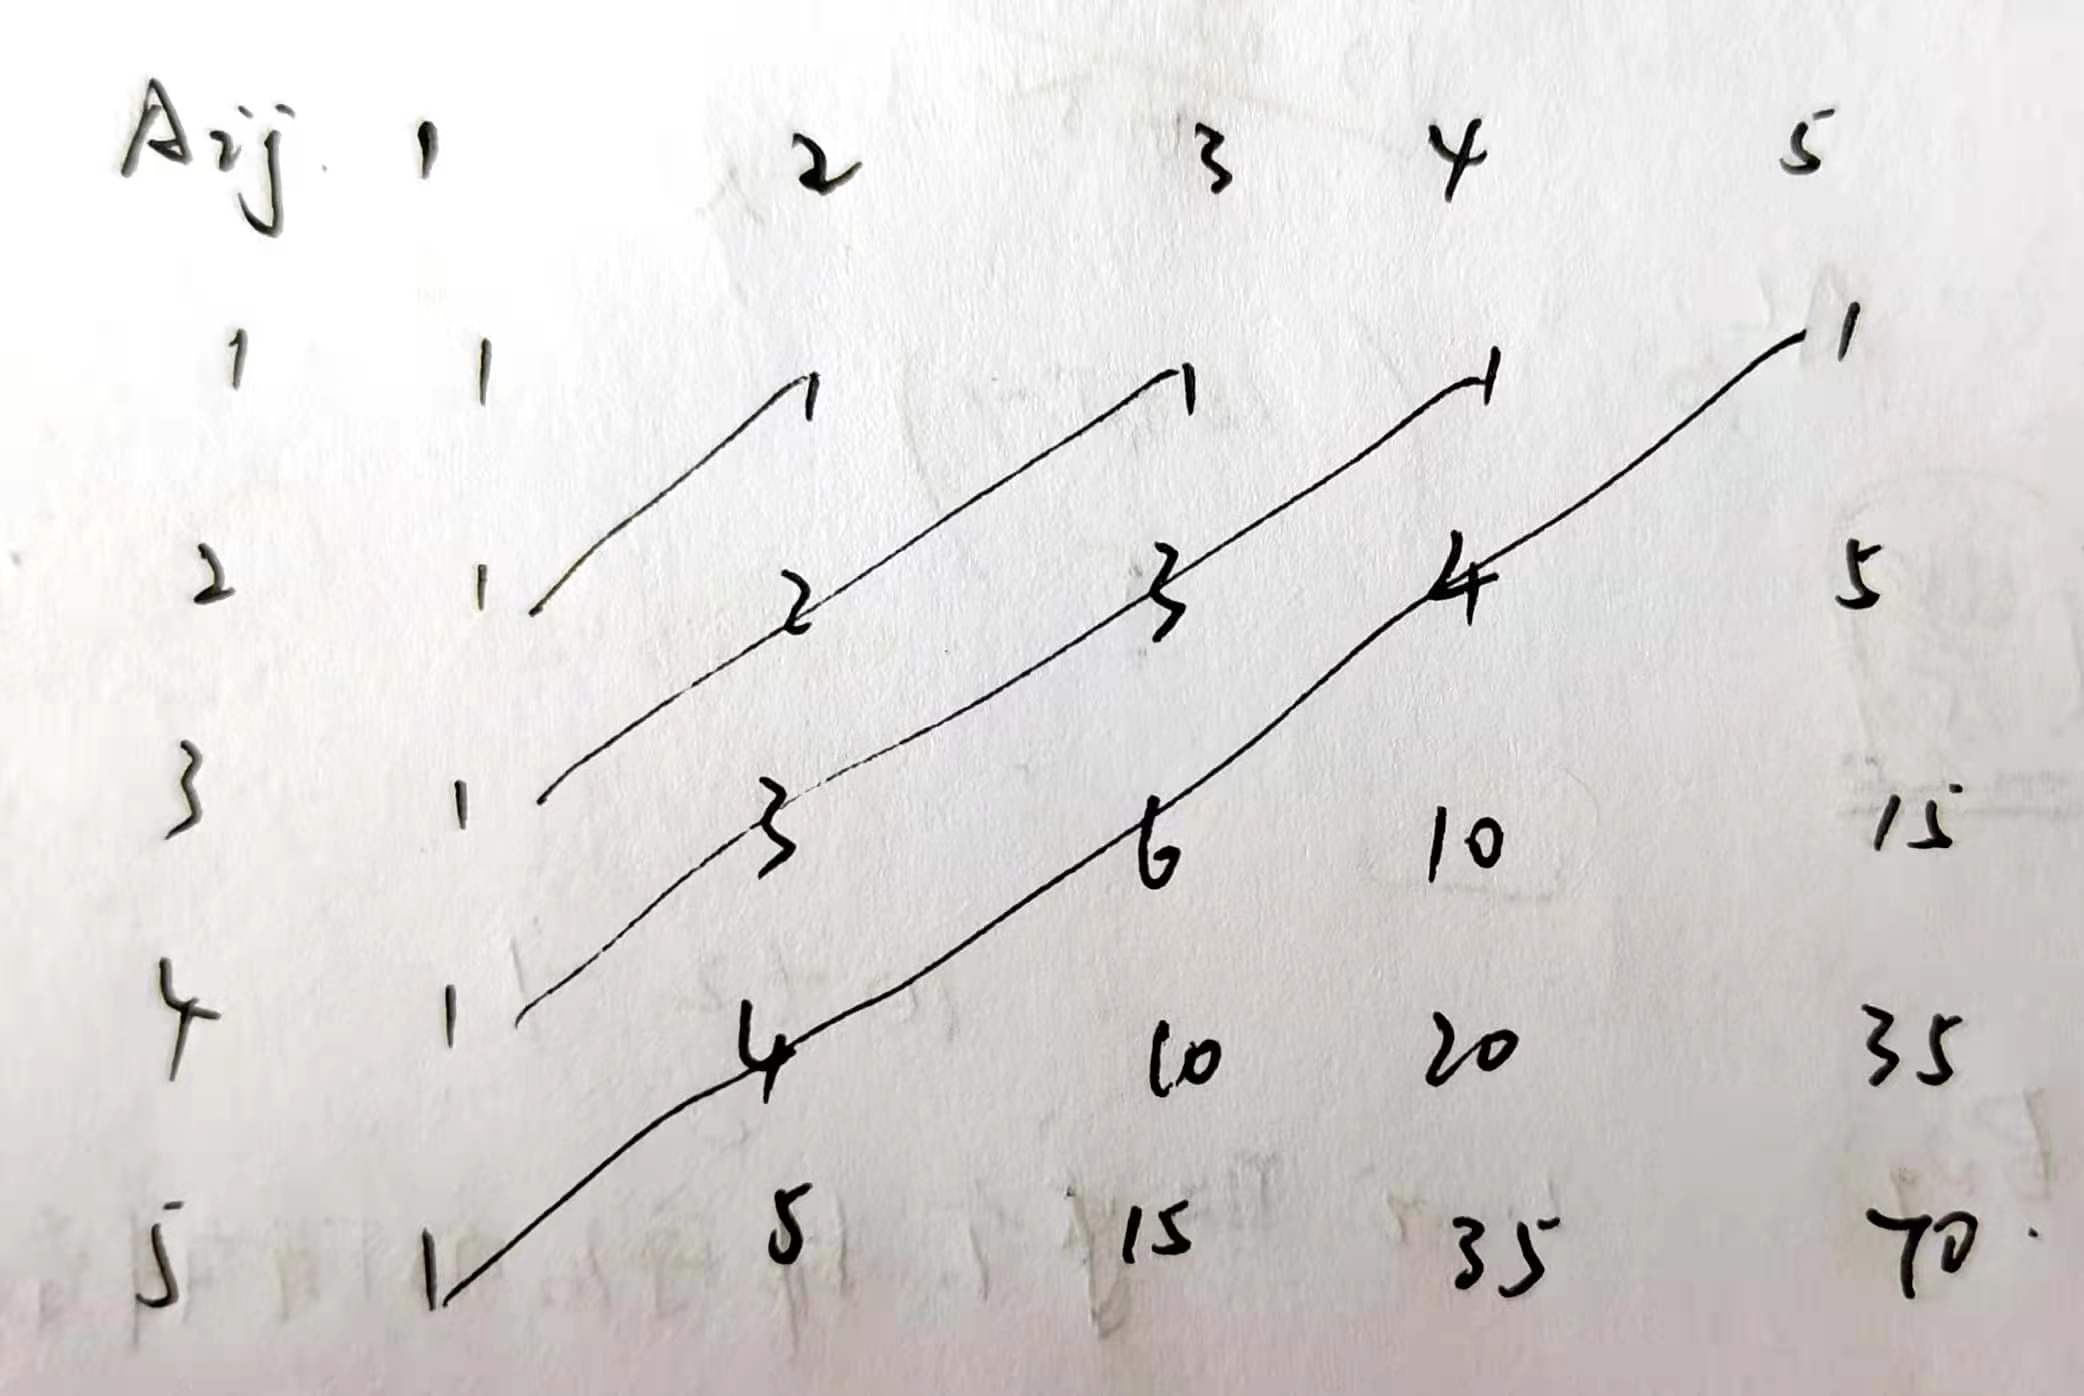 Aij 1 2 3 4 5
1 1 1 1 1 1
2 1 2 3 4 5
3 1 3 6 10 15
4 1 4 10 20 35
5 1 5 15 35 70